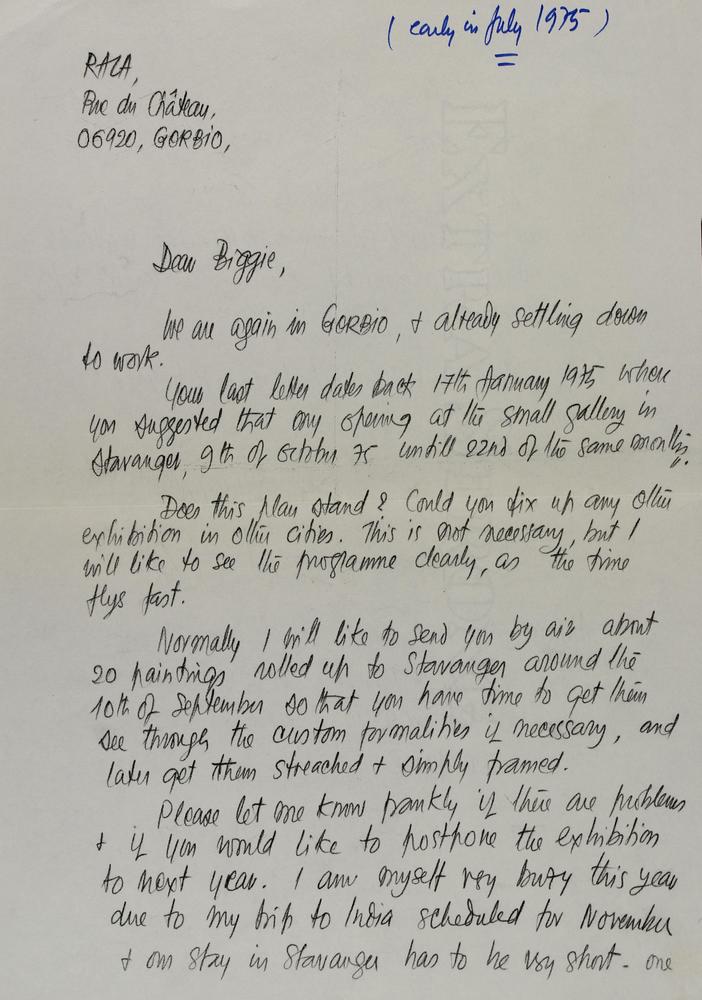 (early in July 1975)
RAZA,
Rue du Château,
06920, GORBIO,
Dear Biggie,
We are again in GORBIO, & already settling down
to work.
Your last letter dates back 17th January 1975 where
you suggested that my opening at the small gallery in
Stavanger, 9th of October 75 untill 22nd of the same month.
Does this plan stand? Could you fix up any other
exhibition in other cities. This is not necessary, but I
will like to see the programme clearly, as the time
flys fast.
Normally I will like to send you by air about
20 paintings rolled up to Stavanger around the
10th of September so that you have time to get them
see through the custom formalities if necessary, and
later get them streached & simply framed.
Please let me know frankly if there are problems
& if you would like to postpone the exhibition
to next year. I am myself very busy this year
due to my trip to India scheduled for November
& our stay in Stavanger has to be very short - one